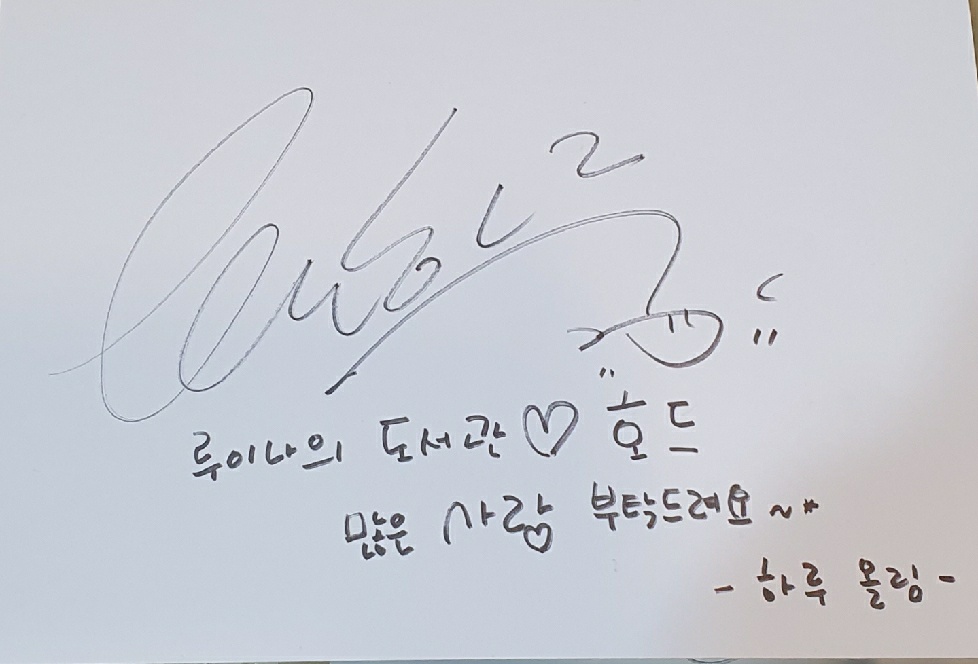 루이나의 도서관♡ "호드"
많은 사랑 부탁드려요~*
- 하루 올림 -